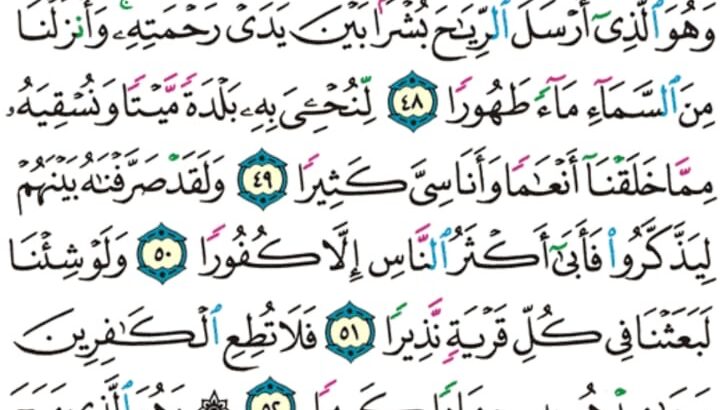 وَهُوَ ٱلَّذِىٓ أَرْسَلَ ٱلرِّيَٰحَ بُشْرًۢا بَيْنَ يَدَىْ رَحْمَتِهِۦ ۚ وَأَنزَلْنَا
مِنَ ٱلسَّمَآءِ مَآءً طَهُورًا ٤٨ لِّنُحْۦِىَ بِهِۦ بَلْدَةً مَّيْتًا وَنُسْقِيَهُۥ
مِمَّا خَلَقْنَآ أَنْعَٰمًا وَأَنَاسِىَّ كَثِيرًا ٤٩ وَلَقَدْ صَرَّفْنَٰهُ بَيْنَهُمْ
لِيَذَّكَّرُوا۟ فَأَبَىٰٓ أَكْثَرُ ٱلنَّاسِ إِلَّا كُفُورًا ٥٠ وَلَوْ شِئْنَا
لَبَعَثْنَا فِى كُلِّ قَرْيَةٍ نَّذِيرًا ٥١ فَلَا تُطِعِ ٱلْكَٰفِرِينَ
٥٢ ۞ وَهُوَ ٱلَّذِى